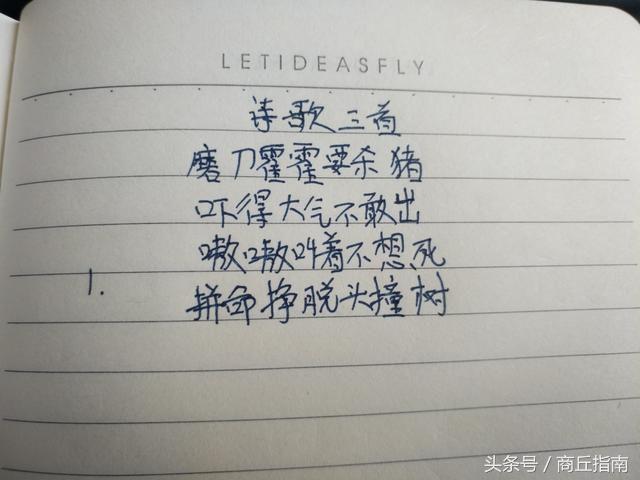 LETIDEASFLY
诗歌三首
磨刀霍霍要杀猪
吓得大气不敢出
嗷嗷叫着不想死
1.
拼命挣脱头撞树
头条号/商丘指南